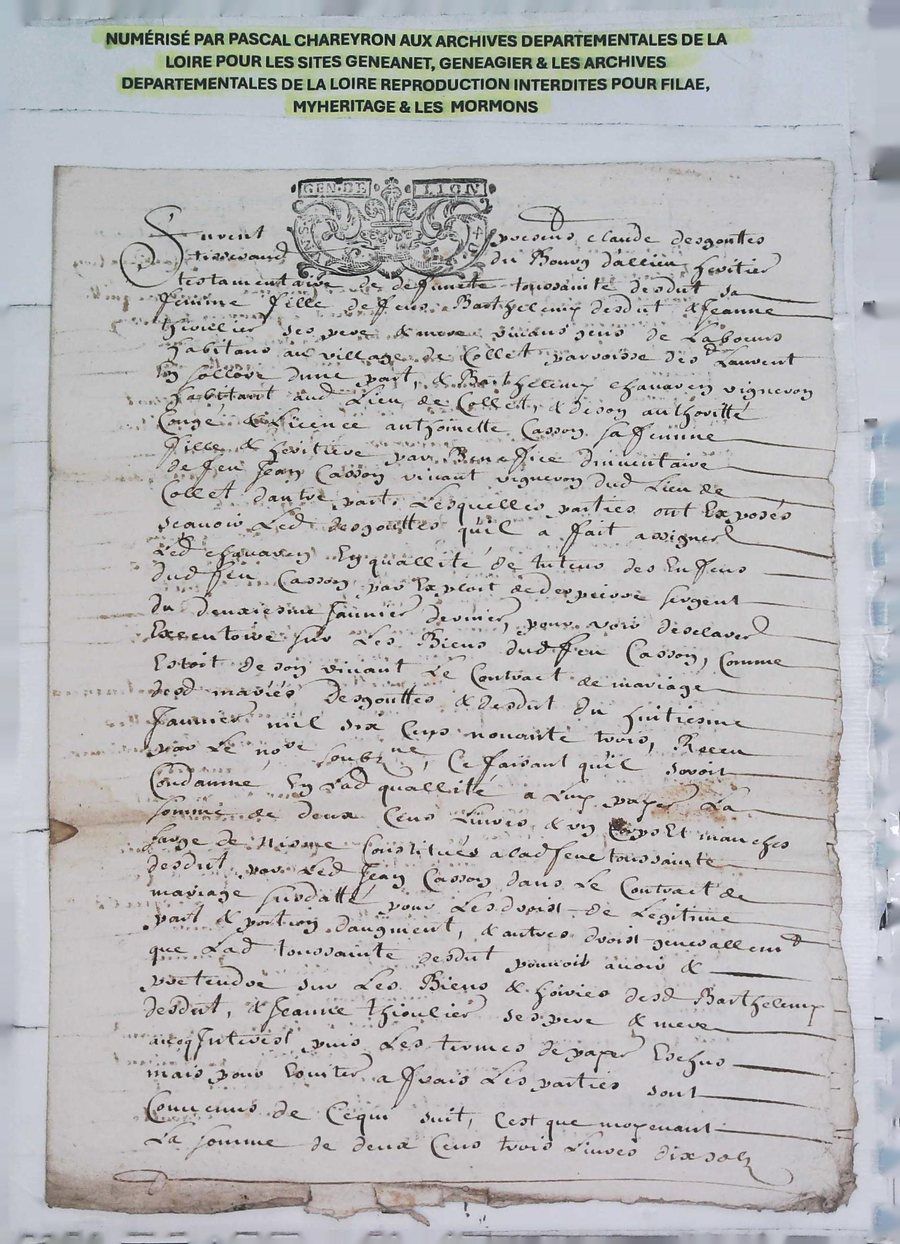 NUMÉRISÉ PAR PASCAL CHAREYRON AUX ARCHIVES DEPARTEMENTALES DE LA
LOIRE POUR LES SITES GENEANET, GENEAGIER & LES ARCHIVES
DEPARTEMENTALES DE LA LOIRE REPRODUCTION INTERDITES POUR FILAE,
MYHERITAGE & LES MORMONS
GEN. DE LION
furent presens claude desgouttes
tisserand du Bourg dallieu heritier
testamentaire de deffuncte toussainte desdut sa
femme fille de feus Barthelemy desdut & Jeanne
thiollier ses pere & mere vivans gens de Labeurs
habitans au village de Collet parroisse de St Laurent
En sollore dune part, & Barthelemy chavaren vigneron
habitant aud Lieu de Collet, & deson authoritté
Congé & Licence anthoinette Casson sa femme
fille & heritiere par Benefice dinventaire
de feu Jean Casson vivant vigneron dud Lieu de
Collet dautre part, Lesquelles parties ont Exposés
scavoir Led desgouttes quil a fait assigner
Led chavaren En quallité de tuteur des Enfens
dud feu Casson par Exploit de sergent
du deuxiesme Janvier dernier, pour voir desclarer
Executoire sur Les Biens dud feu Casson, Comme
Estoit de son vivant Le Contract de mariage
desd mariés Desgouttes & desdut du huitiesme
Janvier mil six Cens nonante trois, Receu
par Le nore soubzne, Ce faisant quil soroit
Condamné En Lad quallité a Luy payer La
somme de deux Cens Livres & un Corps Et manches
sarge de Nisme Constitués a lad feue toussainte
desdut par Led Jean Casson dans Le Contract de
mariage susdatté pour Les droist de Legitime
part & portion daugment, & autres droist generallemt
que Lad toussainte desdut pouvoit avoir &
pretendre sur Les Biens & hoiries desd Barthelemy
desdut, & Jeanne thioulier ses pere & mere
avecq Interest puis Les termes de payer Escheus
mais pour Eviter a frais Les parties sont
Convenus de Cequi suit, Cest que moyenant
La somme de deux Cens trois Livres dix solz